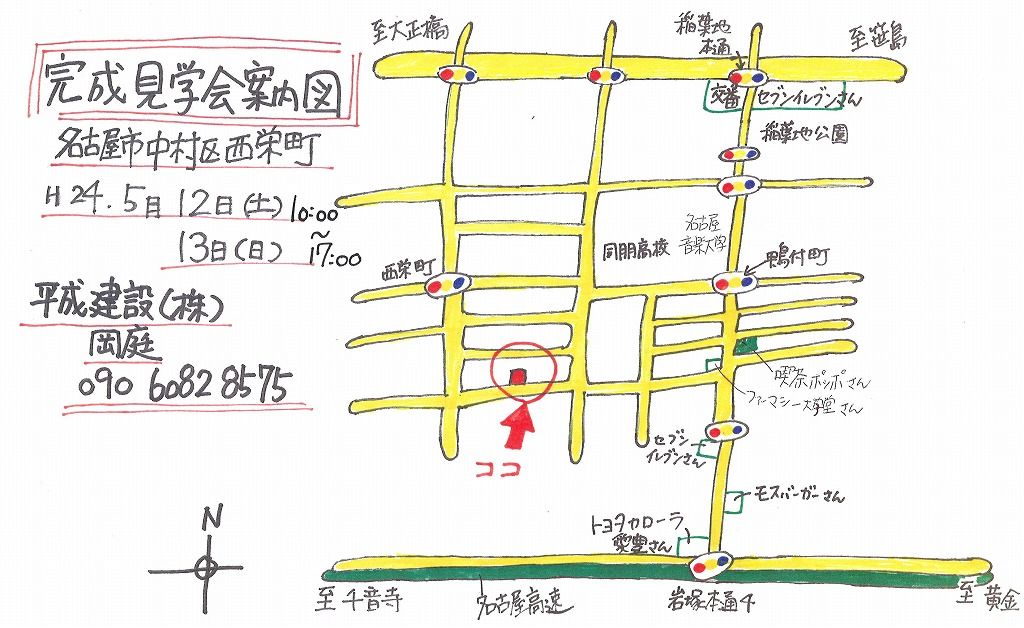 完成見学会案内図
名古屋市中村区西栄町
H24.5月12日(土)10:00
~
13日(日)17:00
平成建設(株)
岡庭
090 6082 8575
N
至大正橋
稲葉地
本通
至笹島
交番
セブンイレブンさん
稲葉地公園
名古屋
音楽大学
同朋高校
西栄町
鴨付町
喫茶ポッポさん
ファーマシー大学堂さん
ココ
セブン
イレブンさん
モスバーガーさん
トヨタカローラ
愛豊さん
至千音寺
名古屋高速
岩塚本通4
至黄金